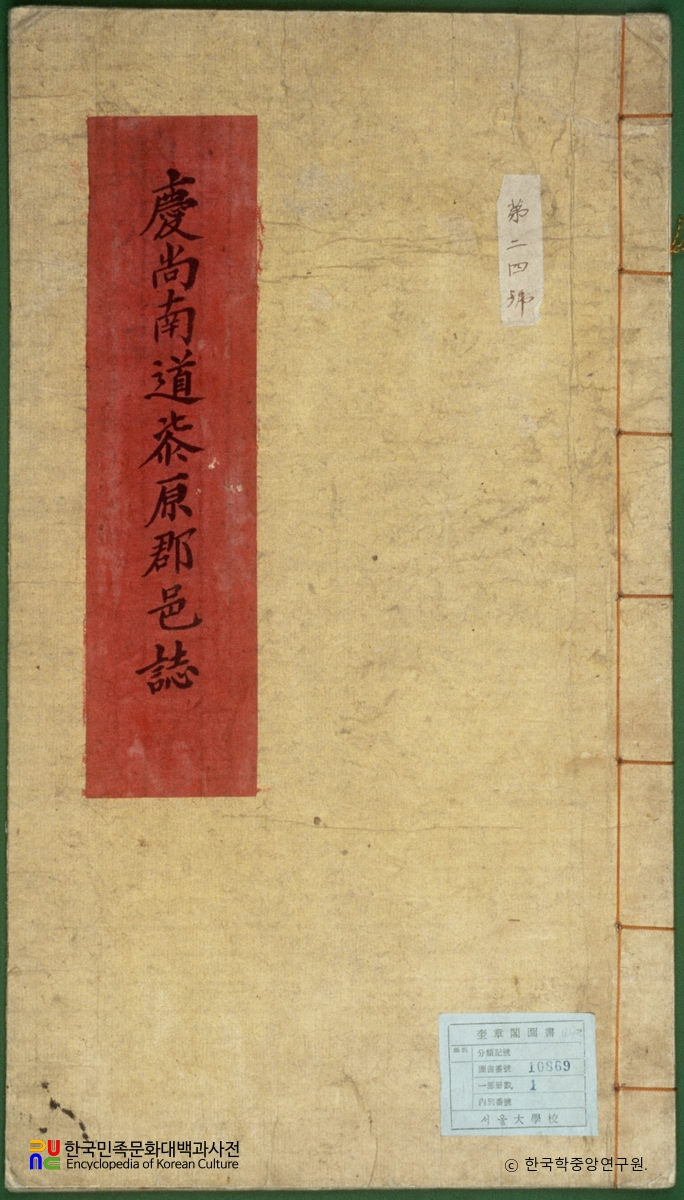 慶尚南道柒原郡邑誌
第二四號
奎章閣圖書
分類記號
圖書番號 10869
一部冊數 1
番號
서울大學校
한국민족문화대백과사전
Encyclopedia of Korean Culture
ⓒ 한국학중앙연구원.